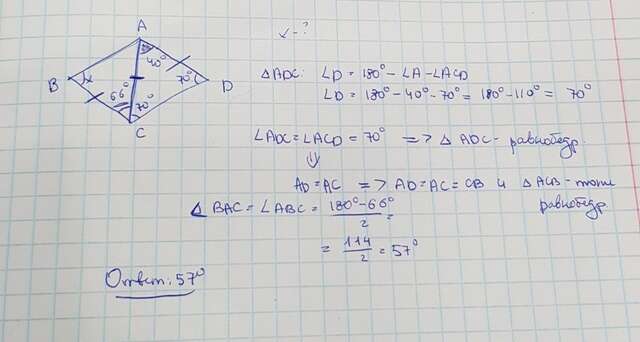 ∠-?
A
40°
B
x
66°
70°
70°
D
C
△ADC: ∠D = 180° - ∠A - ∠ACD
∠D = 180° - 40° - 70° = 180° - 110° = 70°
∠ADC = ∠ACD = 70° => △ADC - равнобедр.
⇓
AD = AC => AD = AC = CB и △ACB - тоже
равнобедр.
∠BAC = ∠ABC = 180° - 66° / 2 =
= 114 / 2 = 57°
Ответ: 57°